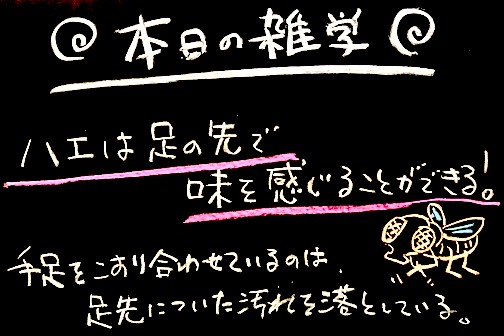 本日の雑学
ハエは足の先で
味を感じることができる!。
手足をこすり合わせているのは、
足先についた汚れを落としている。